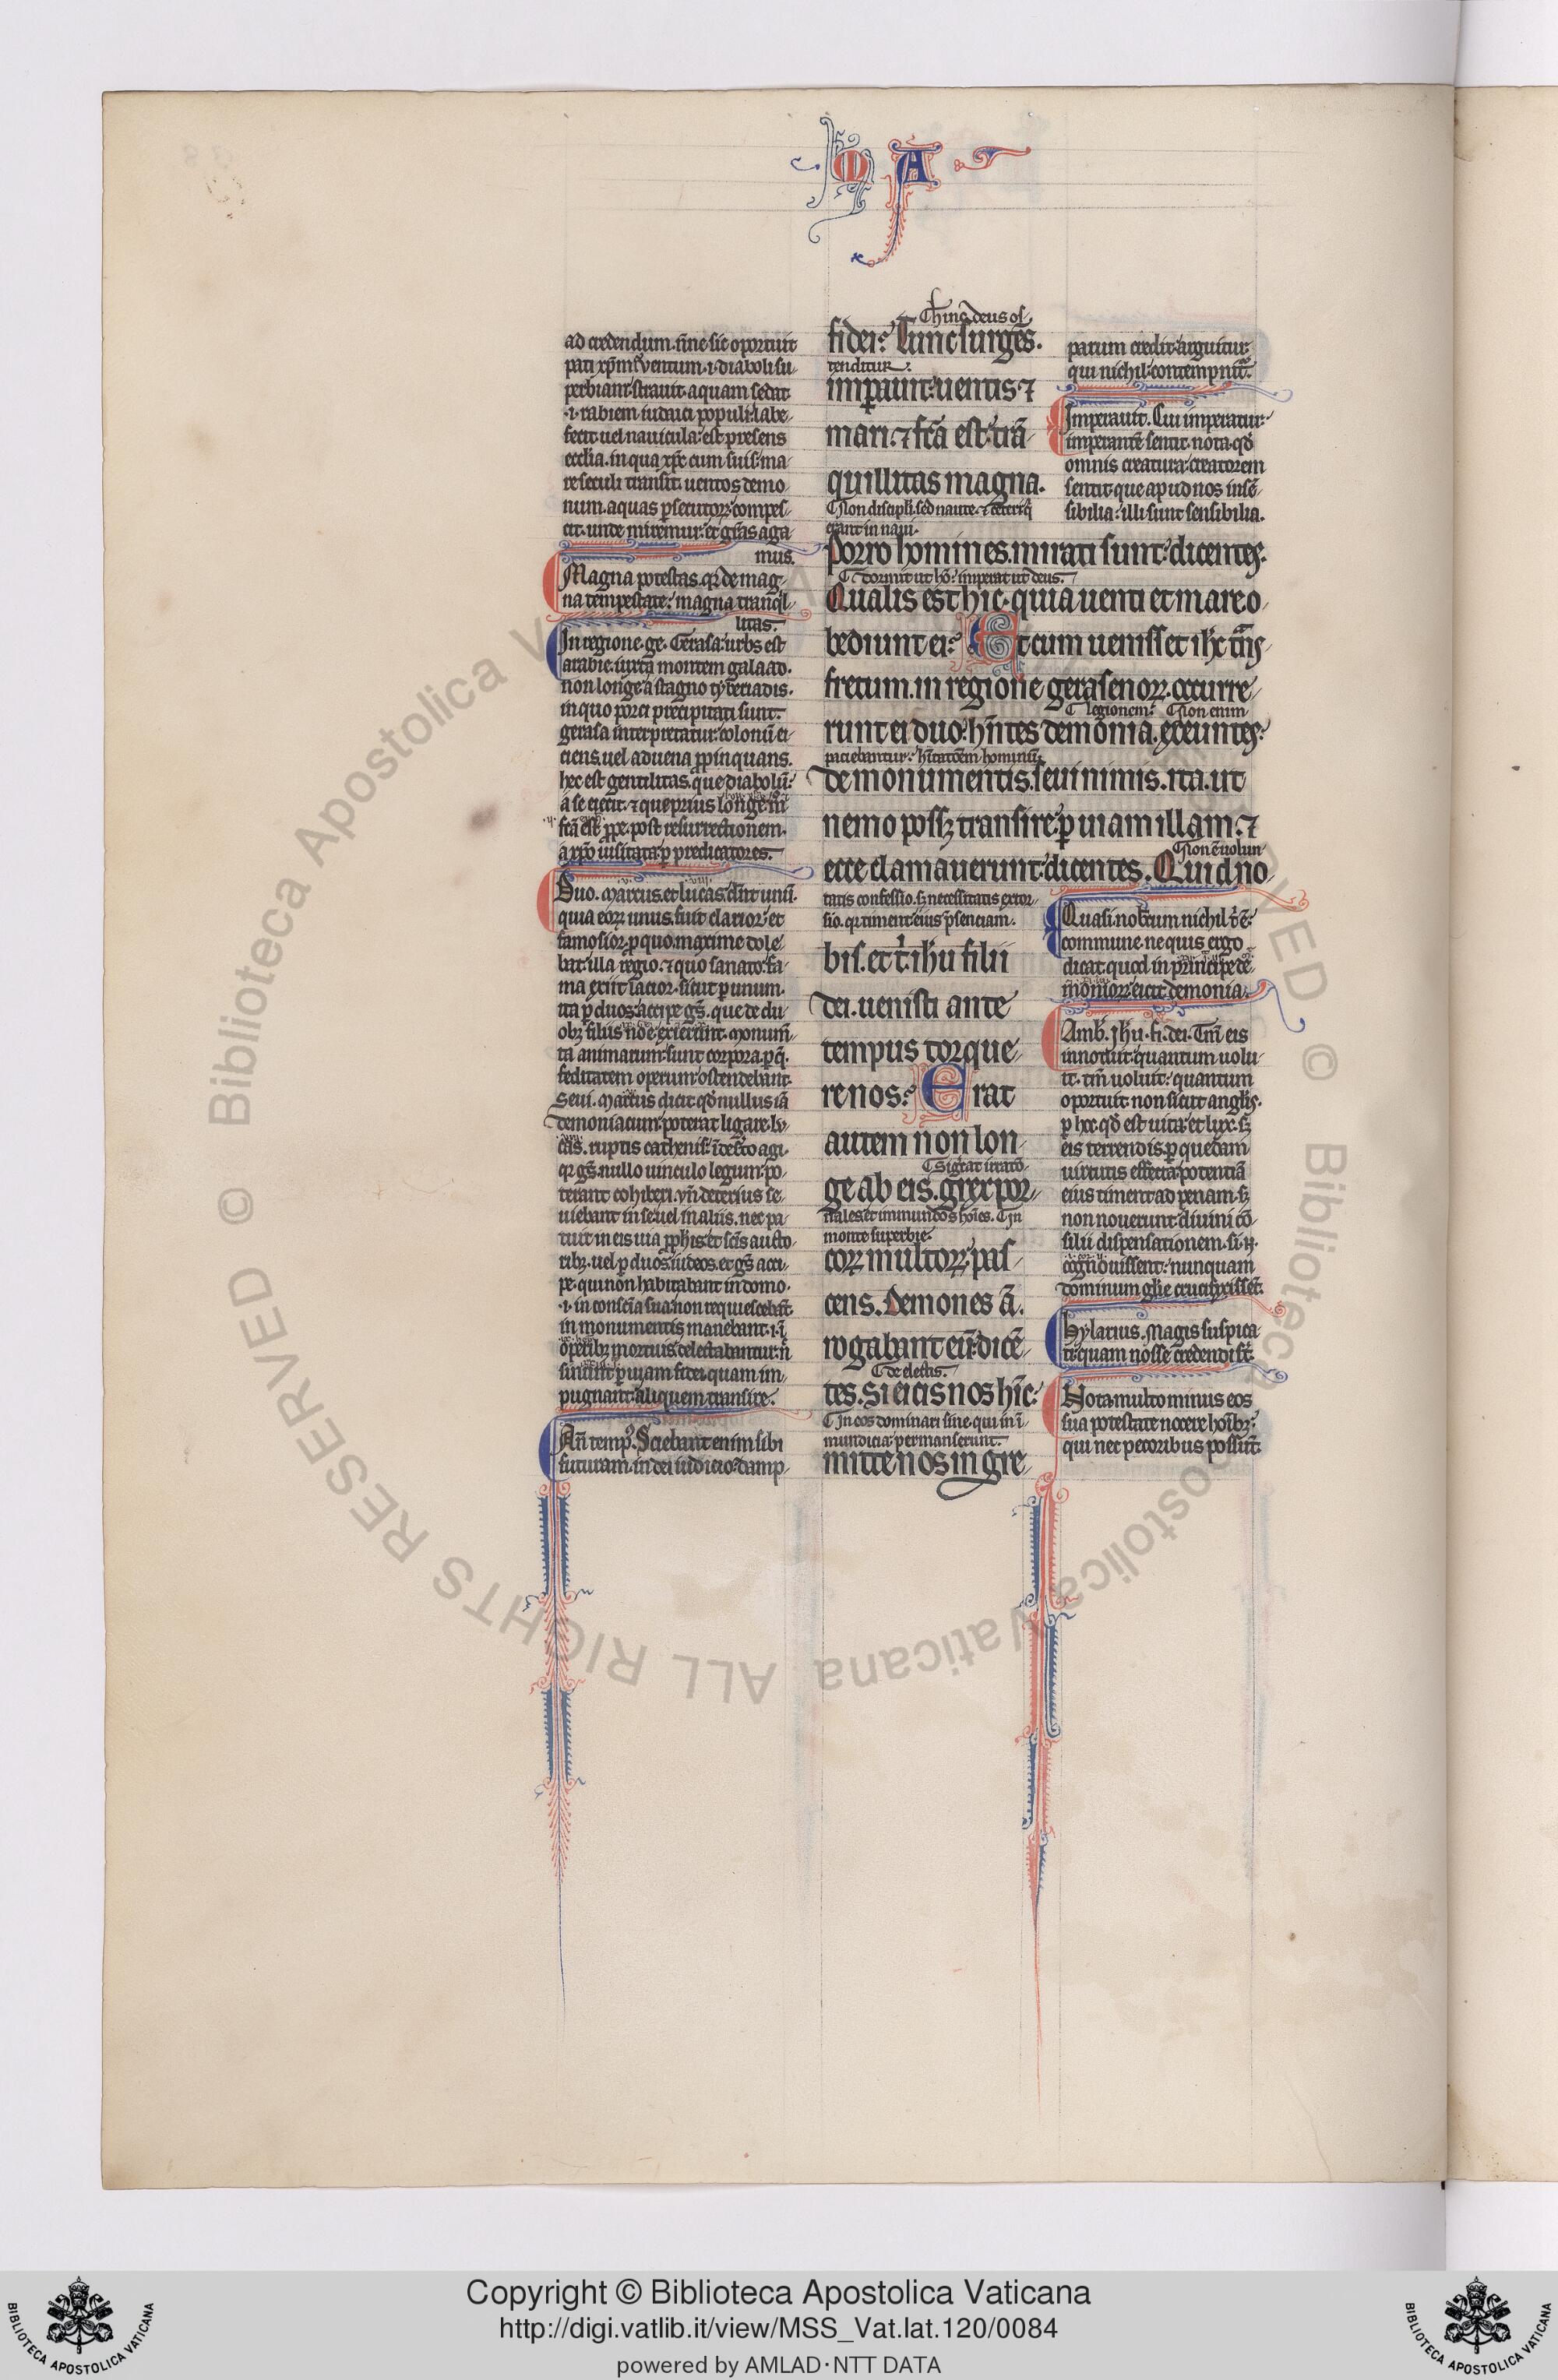 M A
ad credendum. nͥne sic oportuit
pati xp̄m. ventum .i. diaboli su-
perbiam. strauit. aquam sedat
.i. rabiem iudaici populi labe-
fecit. uel nauicula: est presens
ecclia. in qua xp̄c cum suis. ma-
re seculi transit. uentos demo-
num. aquas p̲secutoꝝ compes-
cit. unde miremur. et gr̄as aga-
mus.
Magna potestas. qͥ de mag-
na tempestate: magna tranqͥl-
litas.
In regione. ge. Gerasa: urbs est
arabie. iuxta montem galaad.
non longe a stagno tyberiadis.
in quo porci precipitati sunt.
gerasa interpretatur: colonū ei-
ciens. uel aduena ꝓpinquans.
hec est gentilitas. que diabolū:
a se eiecit. ⁊ que prius longe
fc̄a est ꝓpe. post resurrectionem.
a xp̄o uisitata ꝑ predicatores.
Duo. Marcus. et lucas. dn̄t unū.
quia eoꝝ unus. fuit clarior: et
famosior. ꝑ quo. maxime dole-
bat illa regio. ⁊ quo sanato: fa-
ma exiit lacior. sicut ꝑ unum.
ita ꝑ duos: accipe gs̄. que de du-
obꝫ filiis noe exierunt. Monum̄-
ta animarum: sunt corpora. ꝑ q̄.
feditatem operum: ostendebant.
Seui. Marcus dicit qd̄ nullus iā
demoniacum: poterat ligare.
ruptis cathenis.
qͥ gs̄. nullo uinculo legum: po-
terant cohiberi. vn̄ deterius se-
uiebant in se: uel in aliis. nec pa-
tuit in eis uia ꝓphis: et scīs aucto-
ribꝫ. uel ꝑ duos: iudeos. et gs̄ acci-
pe. qui non habitabant in domo.
.i. in consciā sua: non requiescebāt.
in monumentis manebant. .i. ī
operibꝫ mortuis delectabantur. n̄
sinunt ꝑ uiam fidei quam im-
pugnant: aliquem transire.
An̄ temp̄. Sciebant enim sibi
futuram. in dei iudicio: damp-
Hinc deus os-
fidei: Tunc surgēs.
tenditur.
imperauit: uentis ⁊
mari. ⁊ fc̄a est: trā-
quillitas magna.
Non discipli. sed naute. ⁊ ceteri qͥ
erant in naui.
Porro homines. mirati sunt: dicentes.
dormit ut hō: imperat ut deus.
Qualis est hic. quia uenti et mare o-
bediunt ei: Et cum uenisset ihc̄ trāns
fretum. in regione gerasenoꝝ. occurre-
legionem. Non enim
runt ei duo: hn̄tes demonia. exeuntes:
paciebantur: hītatōem hominū.
de monumentis. seui nimis. ita. ut
nemo possꝫ transire: ꝑ uiam illam. ⁊
Non ē uolun-
ecce clamauerunt: dicentes. Quid no-
tatis confessio. sꝫ necessitatis extor-
sio. qͥ timent eius p̄senciam.
bis. et tͥ. ihu fili
dei. uenisti ante
tempus torque-
re nos: Erat
autem non lon-
ge ab eis. grex por-
nales et immundos hoīes. In
monte superbie.
coꝝ multoꝝ: pas-
cens. Demones ā.
rogabant eū: dicē-
de electis.
tes. Si eicis nos hīc:
In eos dominari sine. qui in ī-
mundicia: permanserunt.
mitte nos in gre-
parum credit: arguitur:
qui nichil: contempnitͬ.
Imperauit. Cui imperatur:
imperantē sentit. nota. qd̄
omnis creatura: creatorem
sentit. que apud nos insē-
sibilia: illi sunt sensibilia.
Quasi. nobcum nichil tͥ ē:
commune. ne quis ergo
dicat. quod in principe de-
monioꝝ: eicit demonia.
Amb̄. Ihu. fi. dei. Tm̄ eis
innotuit: quantum uolu-
it. tm̄ uoluit: quantum
oportuit. non sicut anglis.
ꝑ hoc. qd̄ est uita: et lux. sꝫ
eis terrendis. ꝑ quedam
uirtutis effecta. potentiā
eius timent ad penam. sꝫ
non nouerunt diuini cō-
silii dispensationem.
cognouissent: nunquam
dominum glīe crucifixissēt.
Hylarius. Magis suspica-
ti: quam nosse credendi st̄.
Nota. multo minus eos
sua potestate nocere hoībꝫ:
qui nec pecoribus possūt.
© Biblioteca Apostolica Vaticana ALL RIGHTS RESERVED
Copyright © Biblioteca Apostolica Vaticana
http://digi.vatlib.it/view/MSS_Vat.lat.120/0084
powered by AMLAD·NTT DATA
BIBLIOTECA APOSTOLICA VATICANA
BIBLIOTECA APOSTOLICA VATICANA